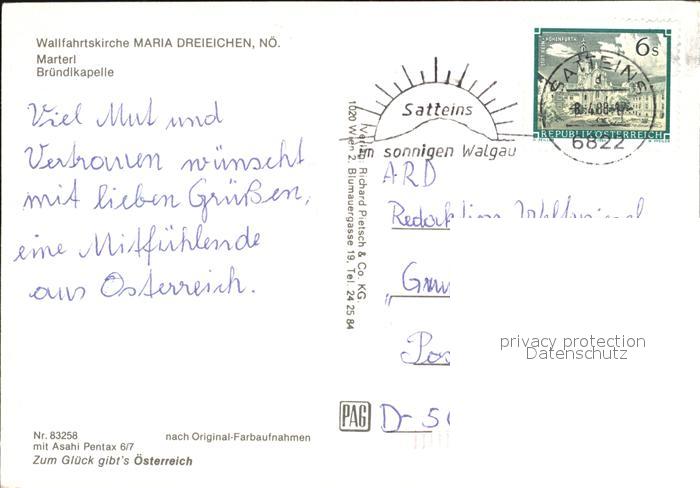 Wallfahrtskirche MARIA DREIEICHEN, NÖ.
Marterl
Bründlkapelle
Viel Mut und
Vertrauen wünscht
mit lieben Grüßen,
eine Mitfühlende
aus Österreich.
Nr. 83258
mit Asahi Pentax 6/7
nach Original-Farbaufnahmen
Zum Glück gibt's Österreich
Verlag Richard Pietsch & Co. KG.
1020 Wien 2, Blumauergasse 19, Tel. 24 25 84
PAG
Satteins
im sonnigen Walgau
6s
REPUBLIK ÖSTERREICH
SATTEINS
6822
ARD
D-5
privacy protection
Datenschutz